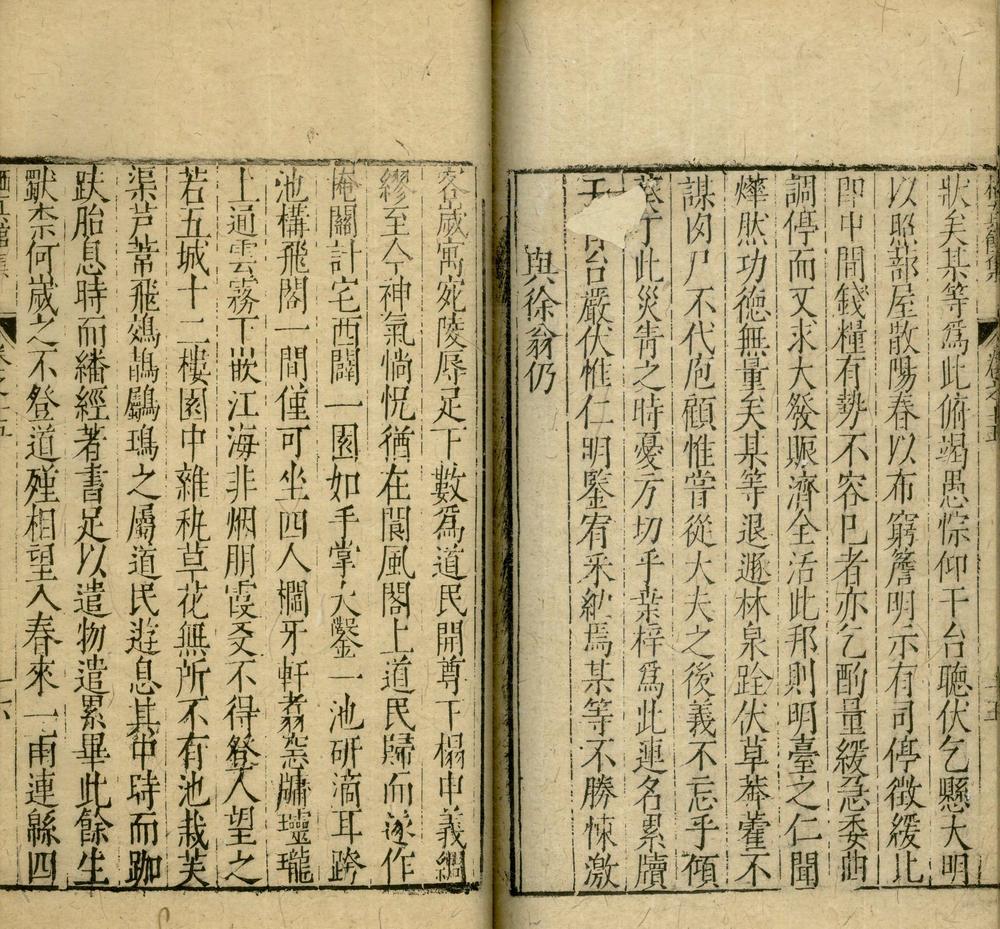 狀矣某等爲此俯竭愚悰仰干台聽伏乞懸大明
以照蔀屋散陽春以布窮簷明示有司停徵緩比
卽中間錢糧有勢不容已者亦乞酌量緩急委曲
調停而又求大發賑濟全活此邦則明臺之仁聞
燁然功德無量矣某等退遯林泉跧伏草莽藿不
謀肉尸不代庖顧惟嘗從大夫之後義不忘乎傾
葵丁此災眚之時憂方切乎桑梓爲此連名累牘
台嚴伏惟仁明鑒宥采納焉某等不勝悚激
與徐翁仍
客歲寓宛陵辱足下數爲道民開尊下榻申義綢
繆至今神氣惝怳猶在閬風閣上道民歸而遂作
掩關計宅西闢一園如手掌大鑿一池研滴耳跨
池構飛閣一間僅可坐四人欄牙軒翥窓牖瓏瓏
上逼雲霧下嵌江海非烟朋霞友不得登人望之
若五城十二樓園中雜秇草花無所不有池栽芙
渠芦葦飛鵁鶄鸂鶒之屬道民遊息其中時而跏
趺胎息時而繙經著書足以遣物遣累畢此餘生
歇柰何歲之不登道殣相望入春來一雨連緜四
卷之十五
十六